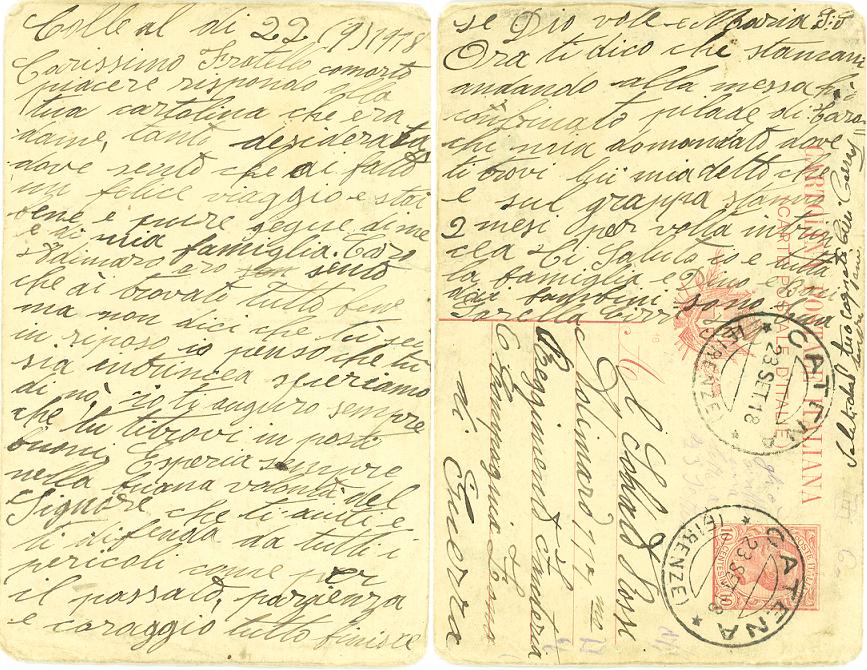 Colle al di 22 (9) 1918
Carissimo Fratello comorto
piacere rispondo alla
tua cartolina che era
dame, tanto desiderata
dove sento che ai fatto
un felice viaggio e stai
bene e pure segue di me
e di mia famiglia. Caro
Adimaro ero sento
che ai trovato tutto bene
ma non dici che tu sei
in riposo io penso che tu
sia intrincea speriamo
di nò, io ti auguro sempre
che tu ti trovi in posti
buoni, sempre
nella buana volontà del
Signore che ti aiuti e
ti difenda da tutti i
pericoli come per
il passato, pazienza
e coraggio tutto finisce
se Dio vole e Maria S.S
Ora ti dico che stamani
andando alla messa ho
di
chi mia domandato dove
ti trovi lui mia detto che
e sul grappa stanno
2 mesi per volta in trin
cea Ti Saluto io e tutta
la famiglia e
miei bambini sono tua
Sorella
Saluti dal tuo cognato
CARTOLINA POSTALE ITALIANA
(CARTE POSTALE D'ITALIE)
CATENA
(FIRENZE)
23 SET. 18
CATENA
(FIRENZE)
23 SET. 18
Al Soldato Rossi
Adimaro
Reggimento Fanteria
Compagnia
Zona
di Guerra